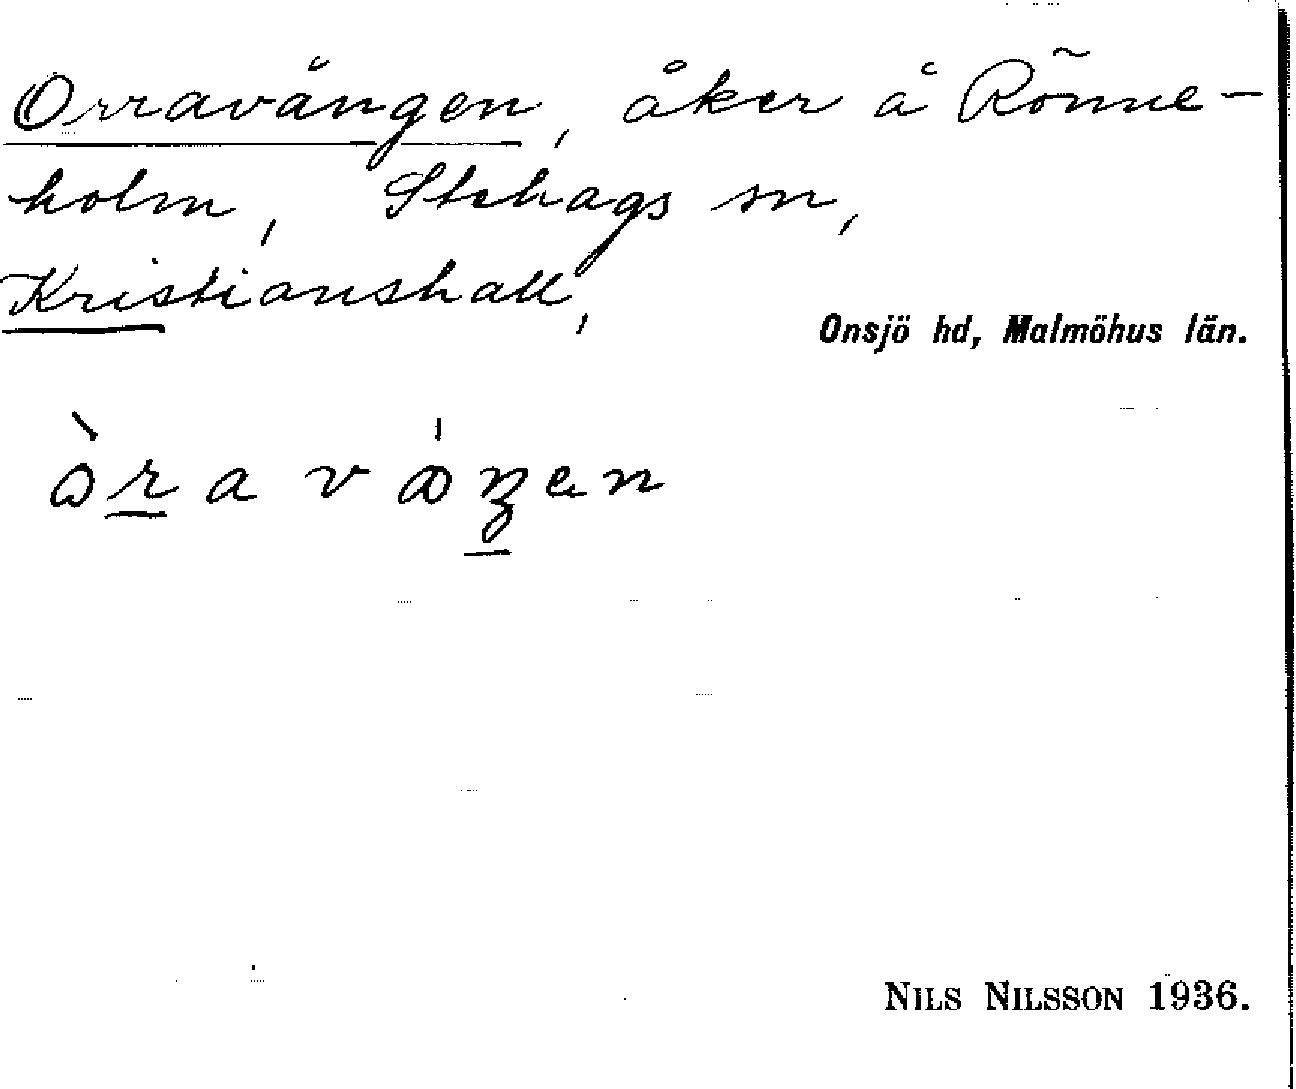 Orravången, åker å Rönne-
holm, Stehags sn,
Kristianshall,
Onsjö hd, Malmöhus län.
NILS NILSSON 1936.